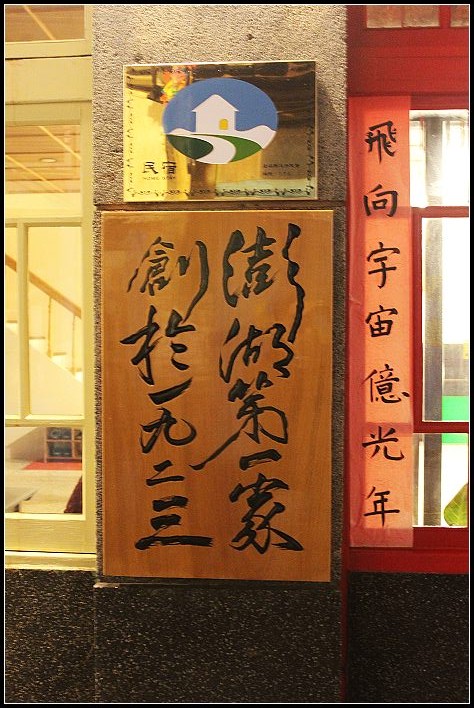 民宿
澎湖第一家
創於一九二三
飛向宇宙億光年